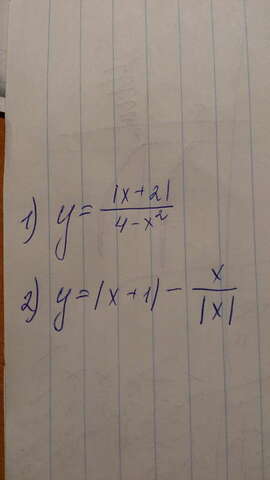 1) y = |x+2| / 4-x²
2) y = |x+1| - x / |x|